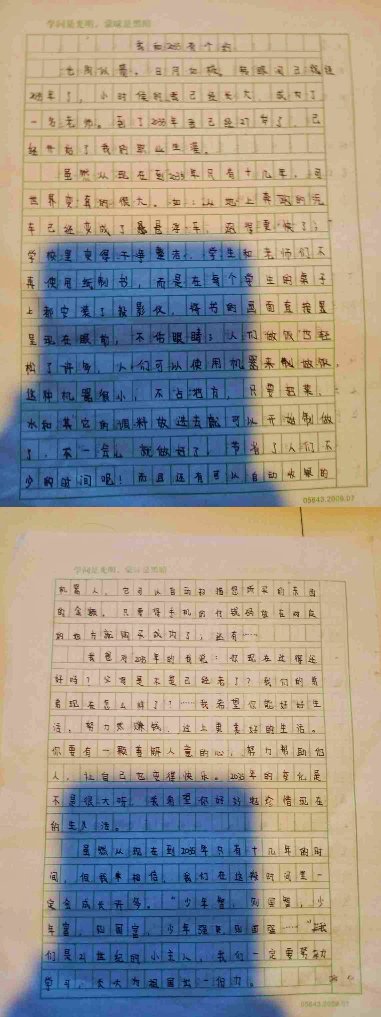 学问是光明，蒙昧是黑暗
我和2035有个约
光阴似箭，日月如梭，转眼间已经是
2035年了，小时候的我已经长大，成为了
一名老师。到了2035年我已经27岁了，已
经开始了我的职业生涯。
虽然从现在到2035年只有十几年，可
世界变真的很大。如：从地上奔跑的汽
车已经变成了悬浮车，速度更快了；
学校里变得干净整洁，学生和老师们不
再使用纸制书，而是在每个学生的桌子
上都安装了投影仪，将书的画面直接显
呈现在眼前，不伤眼睛；人们做饭也轻
松了许多，人们可以使用机器来制做饭，
这种机器很小，不占地方，只要把菜、
水和其它的调料放进去就可以开始制做
了，不一会儿就做好了，节省了人们不
少的时间呢！而且还有可以自动收银的
05643.2009.07
学问是光明，蒙昧是黑暗
机器人，它可以自动扫描您所买的东西
的金额，只要将手机的付钱码放在对应
的地方就购买成功了；还有……
我想对2035年的我说：你现在过得还
好吗？父母是不是已经老了？我们的
现在怎么样了？……我希望你能好好生
活，努力赚钱，过上更美好的生活。
你要有一颗善解人意的心，努力帮助他
人，让自己也变得快乐。2035年的变化是
不是很大呀，我希望你好好珍惜现在
的生活。
虽然从现在到2035年只有十几年的时
间，但我相信，我们在这段时间里一
定会成长许多。“少年智，则国智，少
年富，则国富，少年强则国强……”我
们是21世纪的小主人，我们一定要努力
学习，长大为祖国出一份力。
05643.2009.07